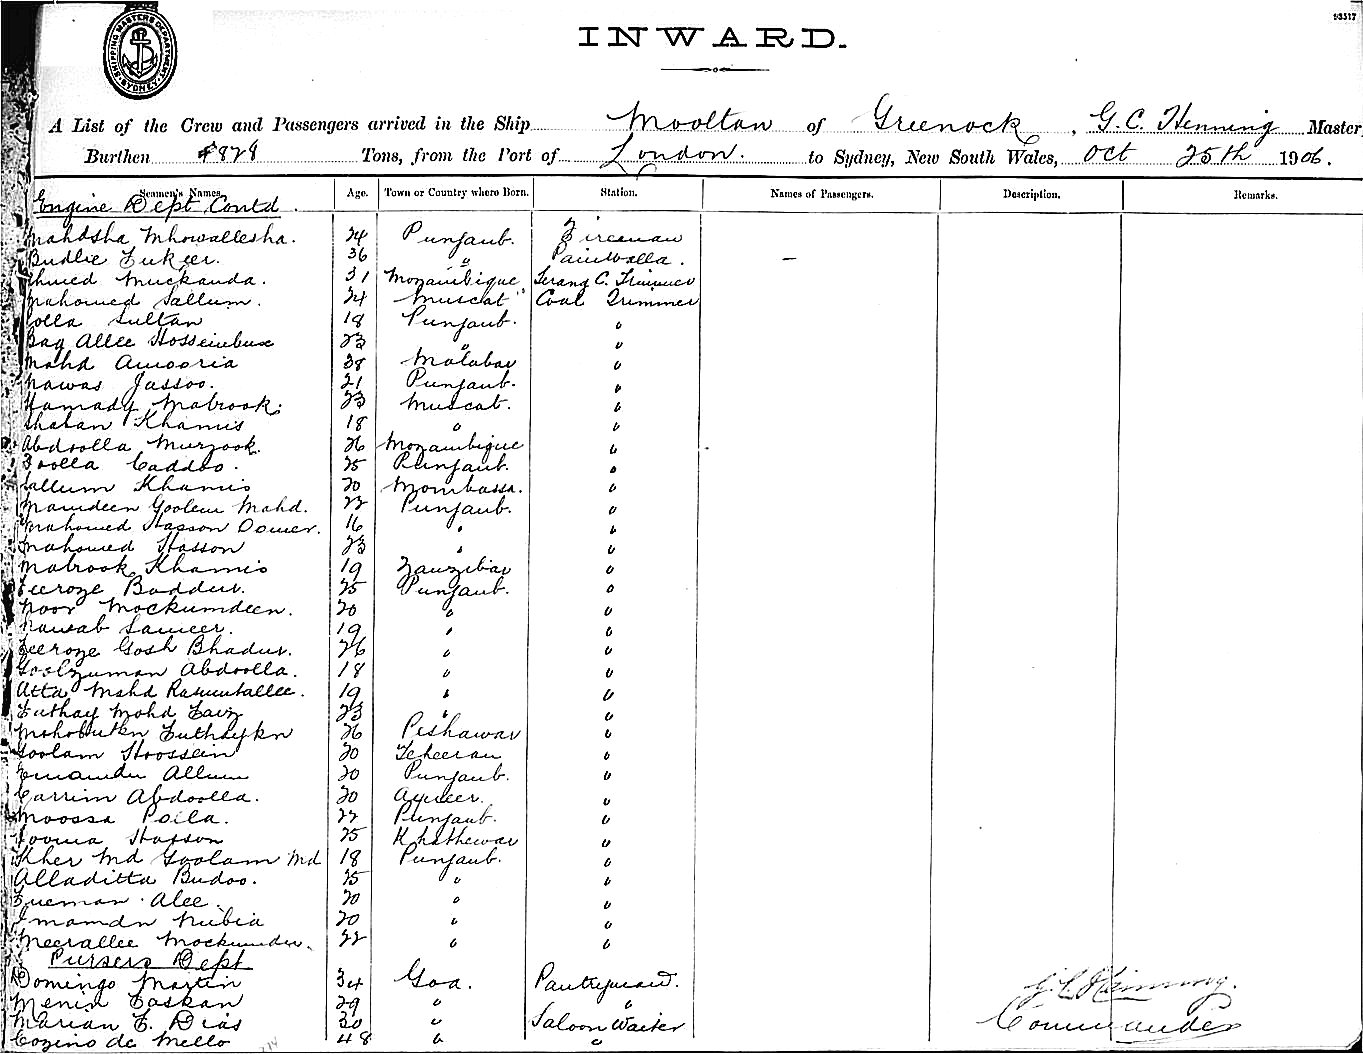 93517
SHIPPING MASTERS DEPARTMENT SYDNEY
INWARD.
A List of the Crew and Passengers arrived in the Ship Mooltan of Greenock, G. C. Henning Master
Burthen 4828 Tons, from the Port of London. to Sydney, New South Wales, Oct 25th 1906.
Seamen's Names. Age. Town or Country where Born. Station. Names of Passengers. Description. Remarks.
Engine Dept Contd.
Mahdsha Mhowallesha. 24 Punjaub. Fireman
Budlie Fukeer. 36 " Paniwalla.
Ahmed Muckanda. 31 Mozambique Serang C. Trimmer
Mahomed Sallum. 24 Muscat Coal Trimmer
Sultan 18 Punjaub. "
Bag Allee Hosseinbux 23 " "
Mahd Amooria 38 Malabar "
Nawas Jassoo. 21 Punjaub. "
Hamady Mabrook. 23 Muscat. "
Shaban Khamis 18 " "
Abdoolla Murzook. 26 Mozambique "
Caddoo. 25 Punjaub. "
Sallum Khamis 20 Mombassa. "
Mamdeen Goolem Mahd. 22 Punjaub. "
Mahomed Hasson Oomer. 16 " "
Mahomed Hasson 23 " "
Mabrook Khamis 19 Zanzibar "
Feeroze Baddur. 25 Punjaub. "
Noor Mockumdeen. 20 " "
Nawab Sameer. 19 " "
Feeroze Gosh Bhadur. 26 " "
Goolzuman Abdoolla. 18 " "
Atta Mahd Ramutallee. 19 " "
Futhay Mohd Faiz 23 " "
Mohobutkn Futhaykn 26 Peshawar "
Goolam Hoossein 20 Teheeran "
Emamdn Allum 20 Punjaub. "
Carrim Abdoolla. 20 Aymeer. "
Moossa Polla. 22 Punjaub. "
Hasson 25 Khathewar "
Kher Md Goolam Md 18 Punjaub. "
Alladitta Budoo. 25 " "
Alee. 20 " "
Imamdn Nubia 20 " "
Meerallee Mockumdn. 22 " "
Pursers Dept
Domingo Martin 34 Goa. Pantryman.
Menin Caskan 29 " "
Marian F. Dias 30 " Saloon Waiter
Cozino de Mello 48 " "
G. C. Henning.
Commander